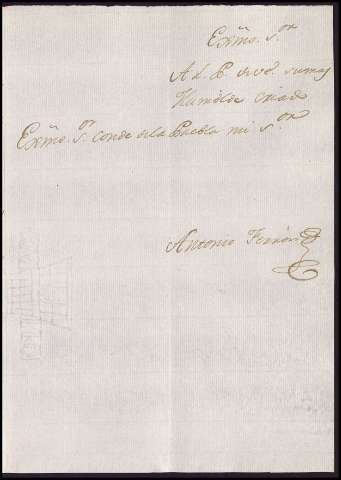 Exmo. Sor
A L. P. de Vd. su mas
Humilde criado
Exmo. Sor Conde de la Puebla mi Sor
Antonio Ferron